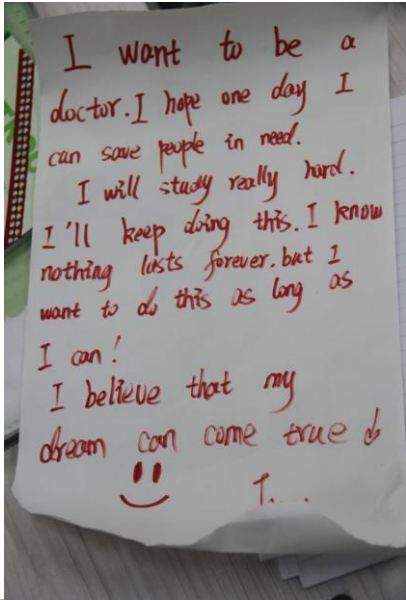 I want to be a
doctor. I hope one day I
can save people in need.
I will study really hard.
I'll keep doing this. I know
nothing lasts forever. but I
want to do this as long as
I can!
I believe that my
dream can come true